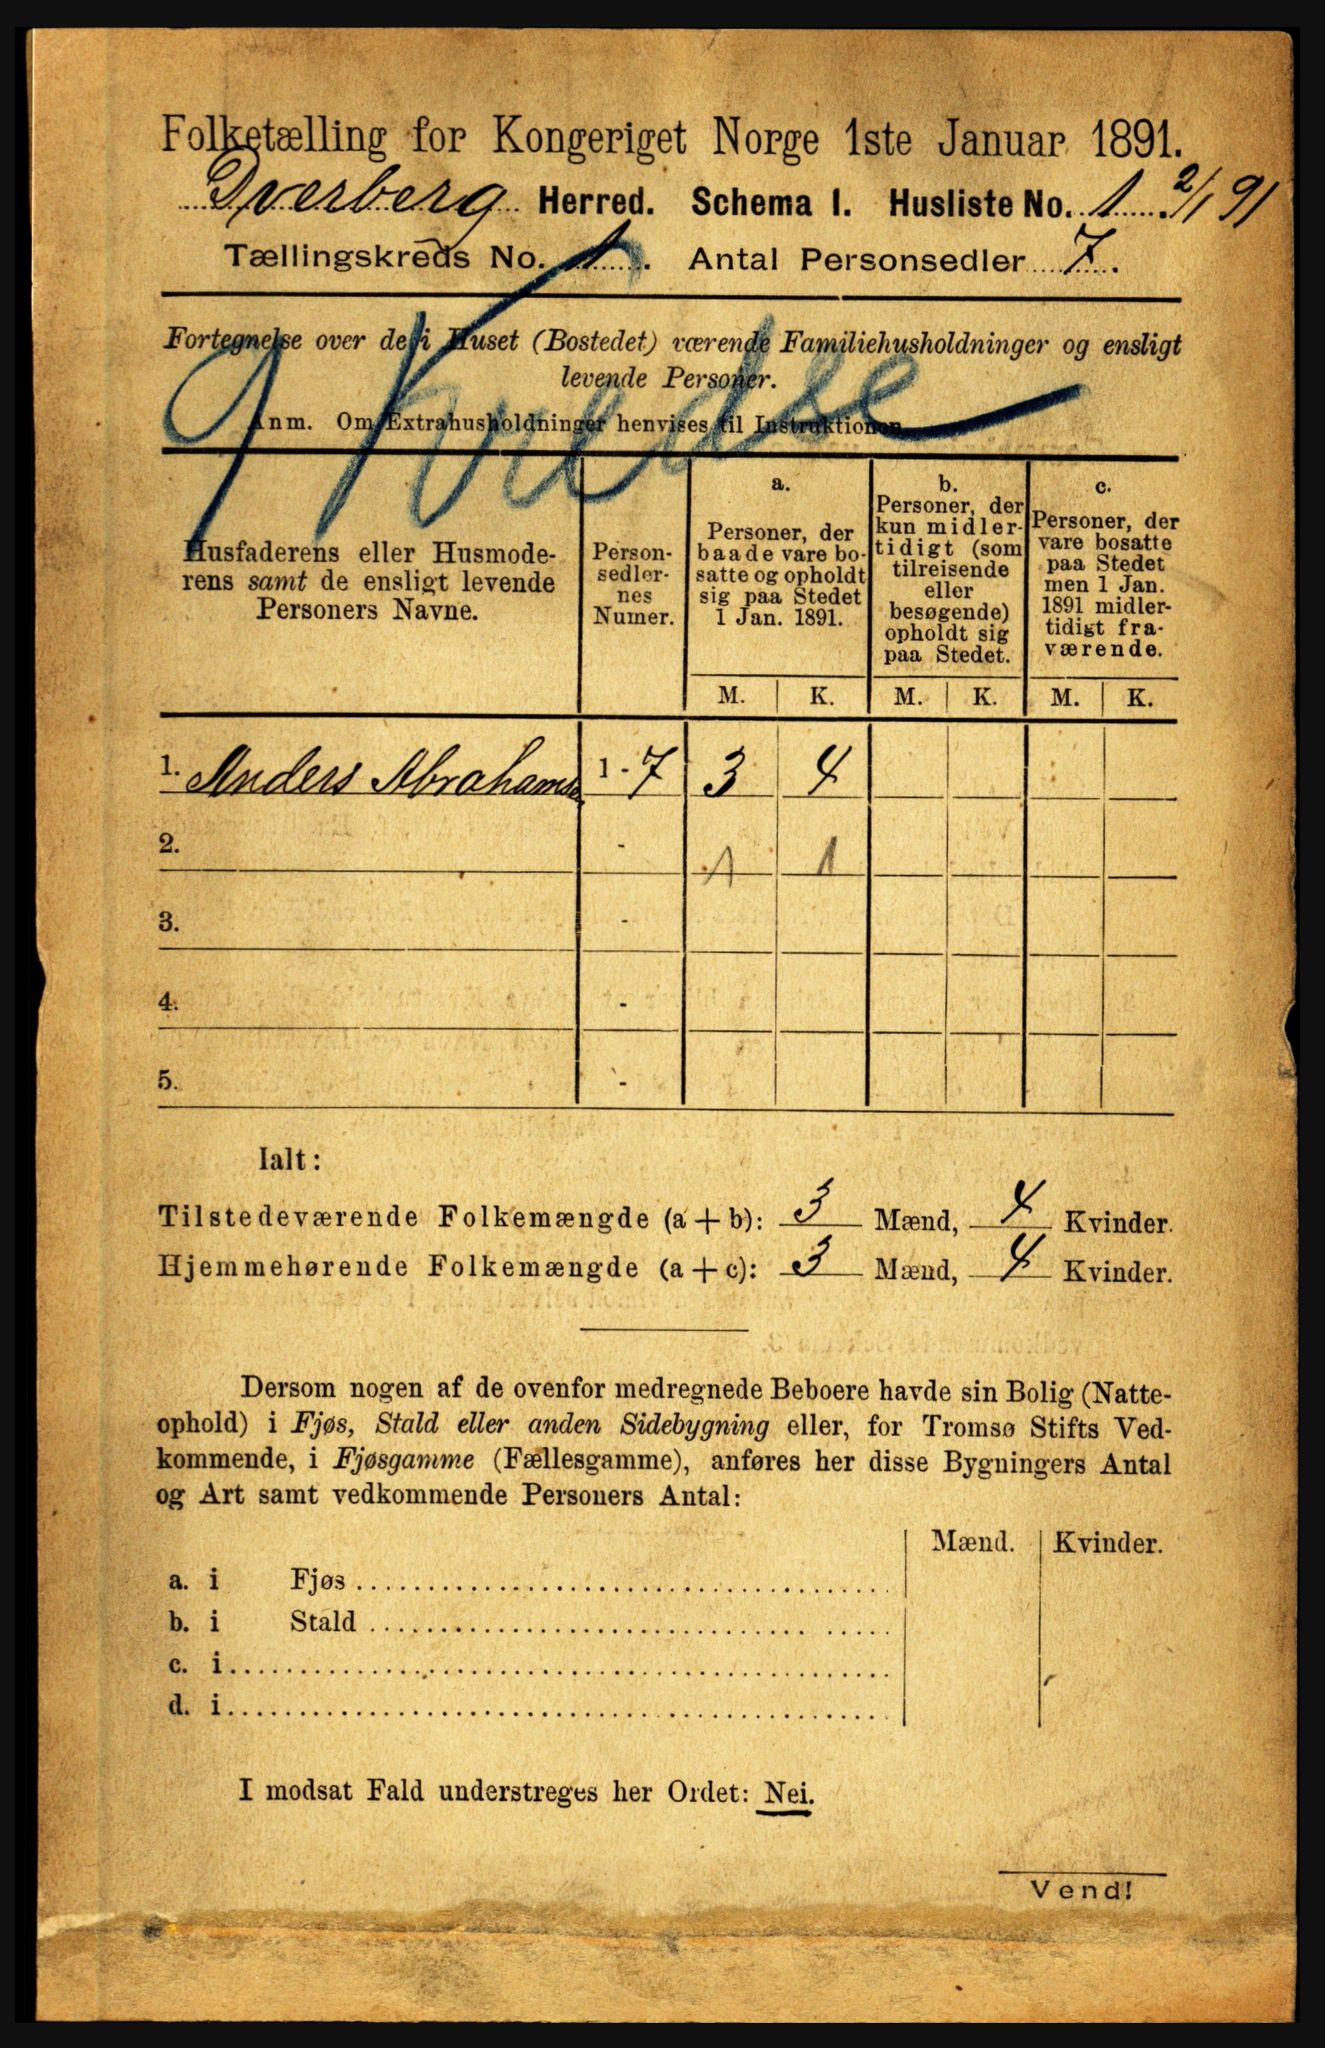 Folketælling for Kongeriget Norge 1ste Januar 1891.
Dverberg Herred. Schema I. Husliste No. 1. 2/1 91
Tællingskreds No. 1. Antal Personsedler 7.
Fortegnelse over de i Huset (Bostedet) værende Familiehusholdninger og ensligt
levende Personer.
Anm. Om Extrahusholdninger henvises til Instruktionen
1 Kredse
Husfaderens eller Husmode-
rens samt de ensligt levende
Personers Navne.
Person-
sedler-
nes
Numer.
a.
Personer, der
baade vare bo-
satte og opholdt
sig paa Stedet
1 Jan. 1891.
b.
Personer, der
kun midler-
tidigt (som
tilreisende
eller
besøgende)
opholdt sig
paa Stedet.
c.
Personer, der
vare bosatte
paa Stedet
men 1 Jan.
1891 midler-
tidigt fra-
værende.
M. K. M. K. M. K.
1. Anders Abrahamsen 1 - 7 3 4
2. - 1 1
3. -
4. -
5. -
Ialt:
Tilstedeværende Folkemængde (a + b): 3 Mænd, 4 Kvinder.
Hjemmehørende Folkemængde (a + c): 3 Mænd, 4 Kvinder.
Dersom nogen af de ovenfor medregnede Beboere havde sin Bolig (Natte-
ophold) i Fjøs, Stald eller anden Sidebygning eller, for Tromsø Stifts Ved-
kommende, i Fjøsgamme (Fællesgamme), anføres her disse Bygningers Antal
og Art samt vedkommende Personers Antal:
Mænd. Kvinder.
a. i Fjøs
b. i Stald
c. i
d. i
I modsat Fald understreges her Ordet: Nei.
Vend!